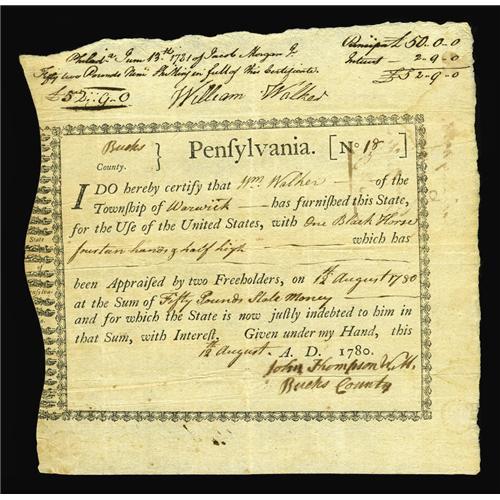 Philada. June 13th 1781 of Jacob Morgan Jr. Principal £50-0-0
Fifty two Pounds Nine Shillings in full of this Certificate. Interest 2-9-0
£52-9-0 £52-9-0
William Walker
Bucks
County. } Pensylvania. [No. 18
I DO hereby certify that Wm. Walker of the
Township of Warwick has furnished this State,
for the Use of the United States, with One Black Horse
fourteen hands & half high which has
been Appraised by two Freeholders, on 1st August 1780
at the Sum of Fifty Pounds State Money
and for which the State is now justly indebted to him in
that Sum, with Interest. Given under my Hand, this
1st August. A. D. 1780.
John Thompson
Bucks County